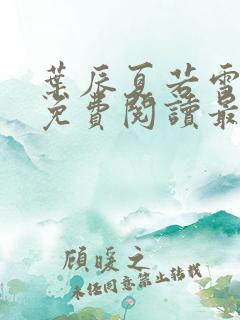 葉辰夏若雪
免費閱讀最
顧暖之
未經同意禁止轉載